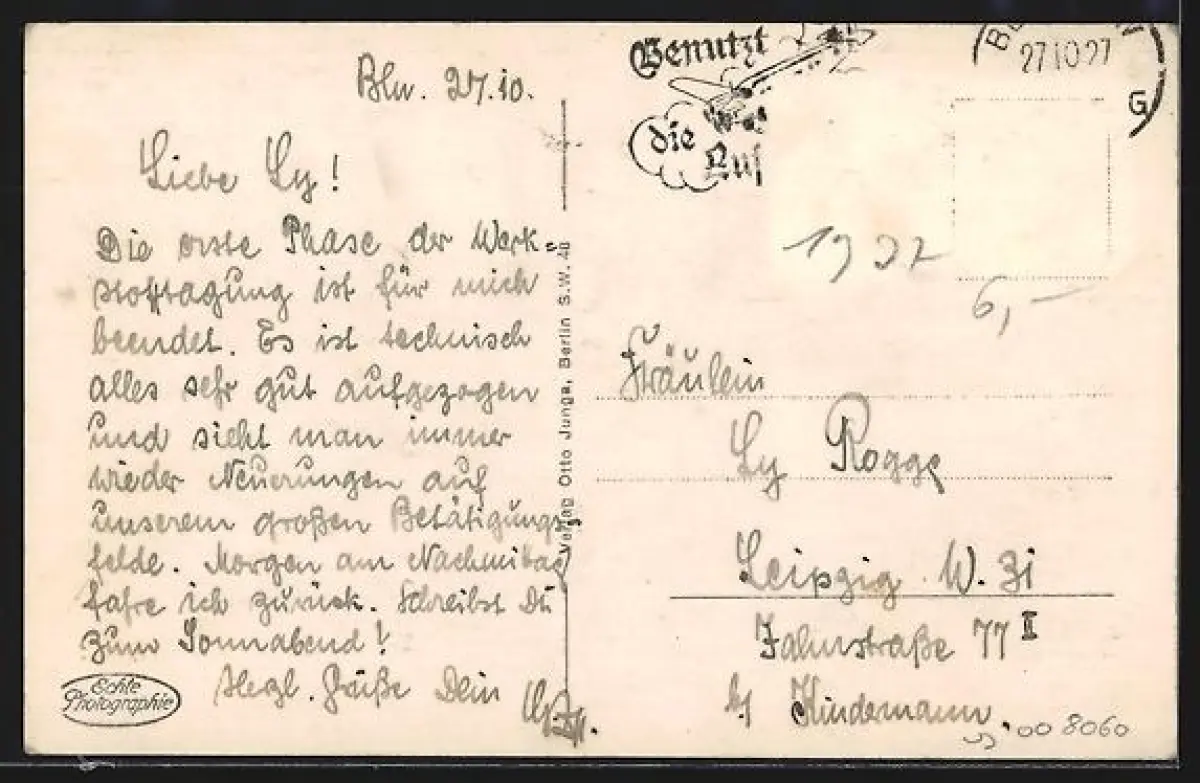 Bln. 27.10.
Liebe Ly!
Die erste Phase der Werk-
stofftagung ist für mich
beendet. Es ist technisch
alles sehr gut aufgezogen
und sieht man immer
wieder Neuerungen auf
unserem großen Betätigungs-
felde. Morgen am Nachmittag
fahre ich zurück. Schreibst Du
zum Sonnabend!
Herzl. Grüße Dein
Echte
Photographie
Verlag Otto Junge, Berlin S.W. 40
Benutzt
die
Luf
27 10 27
G
1927
6,–
Fräulein
Ly Rogge
Leipzig W. 31
Jahnstraße 77 II
b/ Kindermann.
00 8060